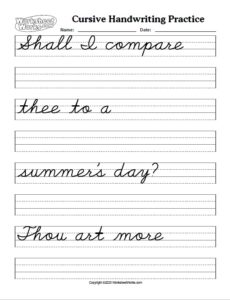 Worksheet Works.com
Cursive Handwriting Practice
Name: Date:
Shall I compare
thee to a
summer's day?
Thou art more
Copyright ©2020 WorksheetWorks.com